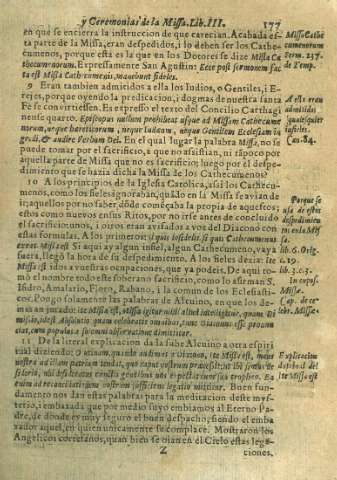 y Ceremonias de la Missa. Lib. III. 177
en que se encierra la instruccion de que carecian. Acabada es-
ta parte de la Missa, eran despedidos, i lo deben ser los Cathe-
cumenos, porque esta es la que en los Doctores se dize Missa Ca
thecumenorum. Expressamente San Agustin: Ecce post sermonem fac
ta est Missa Cathecumenis, manebunt fideles.
9 Eran tambien admitidos a ella los Iudios, o Gentiles, i E-
rejes, porque oyendo la predicacion, i dogmas de nuestra santa
Fè se convirtiessen. En expresso el texto del Concilio Carthagi
nense quarto. Episcopus nullum prohibeat usque ad Missam Cathecume
norum, neque haereticum, neque Iudaeum, neque Gentilem Ecclesiam in
gredi, & audire Verbum Dei. En el qual lugar la palabra Missa, no se
puede tomar por el sacrificio, a que no assistian, ni tàpoco por
aquella parte de Missa que no es sacrificio; luego por el despe-
dimiento que se hazia dicha la Missa de los Cathecumenos?
10 A los principios de la Iglesia Catolica, assi los Cathecu-
menos, como los fieles ignoraban, quãdo en la Missa se avian de
ir; aquellos por no saber, dõde començaba la propia de aquestos;
estos como nuevos en sus Ritos, por no irse antes de concluido
el sacrificio unos, i otros eran avisados a voz del Diacono con
estas formulas. A los primeros: Si quis
exeat. Missa est Si aqui ay algun infiel, algun Cathecumeno, vaya
fuera, llegò la hora de su despedimiento. A los fieles dezia: ite
Missa est idos a vuestras ocupaciones, que ya podeis. De aqui to-
mò el nombre todo este soberano sacrificio, como lo afirman S.
Isidro, Amalario, Floro, Rabano, i la comun de los Eclesiasti-
cos. Pongo solamente las palabras de Alcuino, en que los de-
mas an jurado: ite Missa est, Missa igitur nihil aliud intelligitur, quam Di
missio, idest Absolutio quam celebratis omnibus, tunc Diaconus esse pronun
ciat, cum populus a solemni observatione dimittitur.
11 De la literal explicacion da la sube Alcuino a otra espiri
tual diziendo:
Buen fun-
damento nos dan estas palabras para la meditacion deste mys-
terio, i embaxada que por medio suyo embiamos al Eterno Pa-
dre, de donde es muy seguro el buen despacho; siendo el emba
xador aquel, en quien unicamente se complace. Mostraron los
Angelicos cortesanos, quan bien se oian en el Cielo estas lega-
Z ciones,
Missa Cathe
cumenorum
Serm. 237.
de Temp.
A este eran
admitidos
qualesquier
infieles.
Cap. 84.
Porque se
usa de estas
despedimien
to en la Mis
sa.
lib. 6. Orig.
c. 19.
lib. 3. c. 3.
in expos.
Missa.
Cap. de ce
lebr. Missa.
Explicacion
del
ite Missa est